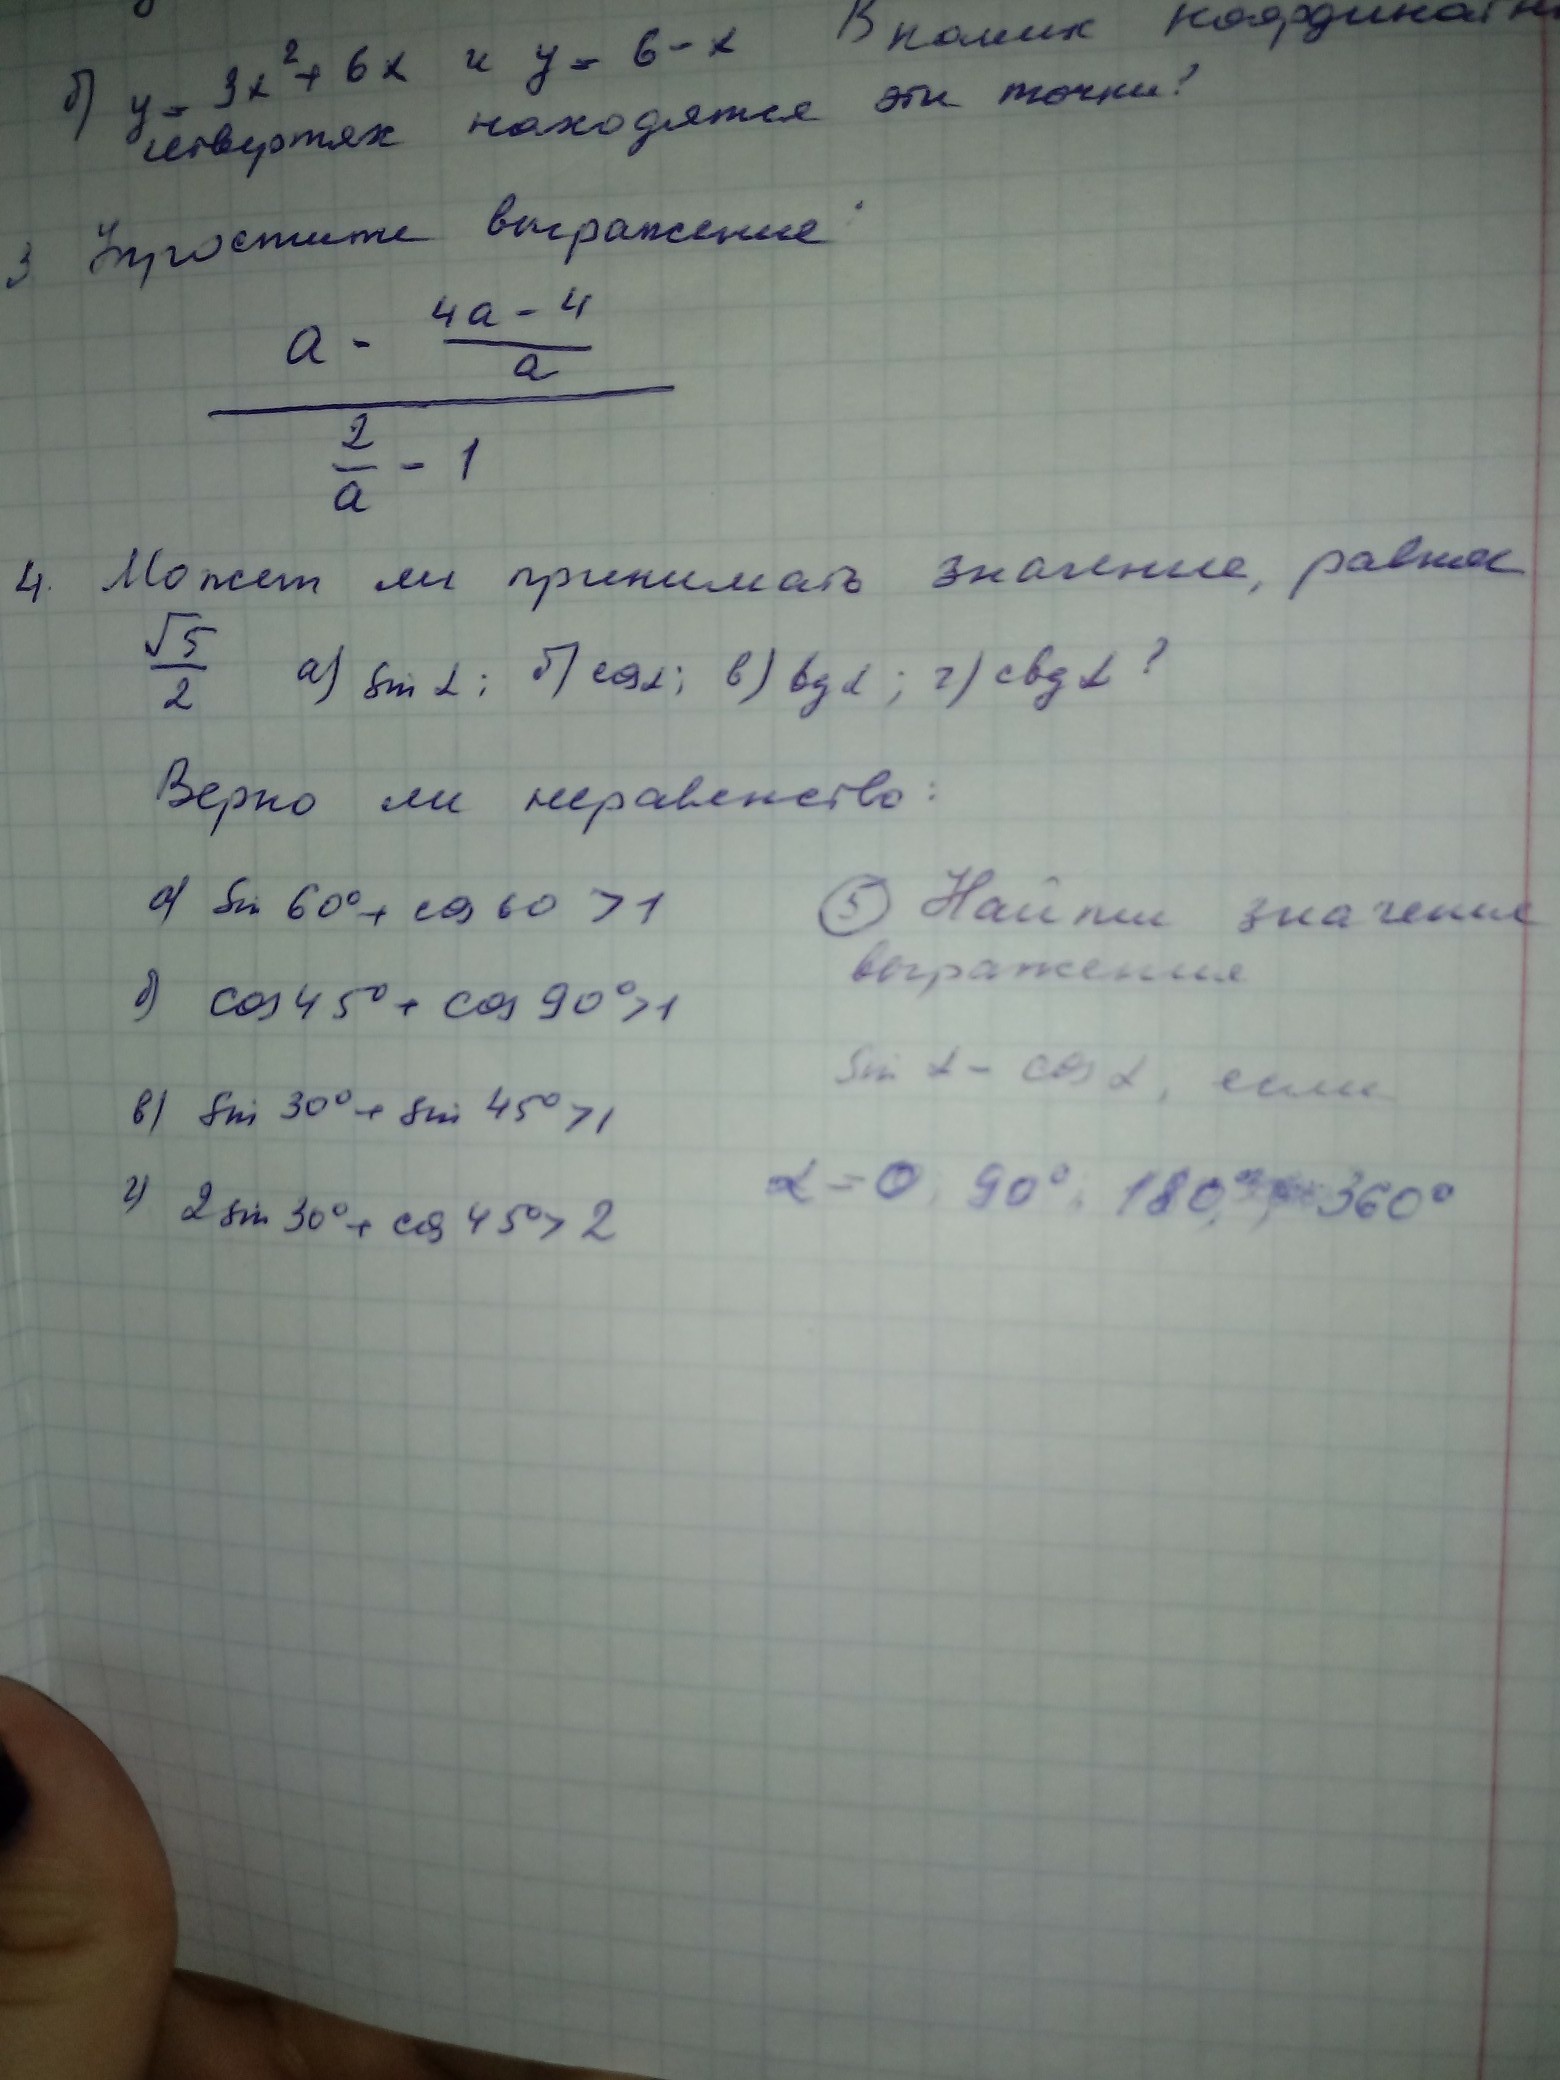 б) y = 3x² + 6x и y = 6 - x В каких координатн
четвертях находятся эти точки?
3 Упростите выражение:
a - (4a - 4)/a
2/a - 1
4. Может ли принимать значение, равное
√5/2 а) sin α; б) cos α; в) tg α; г) ctg α?
Верно ли неравенство:
а) sin 60° + cos 60 > 1
б) cos 45° + cos 90° > 1
в) sin 30° + sin 45° > 1
г) 2 sin 30° + cos 45° > 2
5 Найти значение
выражения
sin α - cos α, если
α = 0; 90°; 180°; 360°